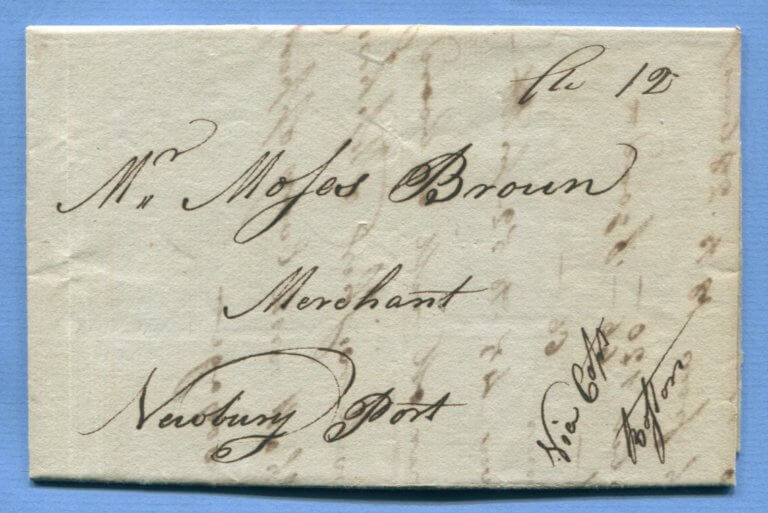 12
Mr Moſes Brown
Merchant
Newbury Port
Via
Boſton